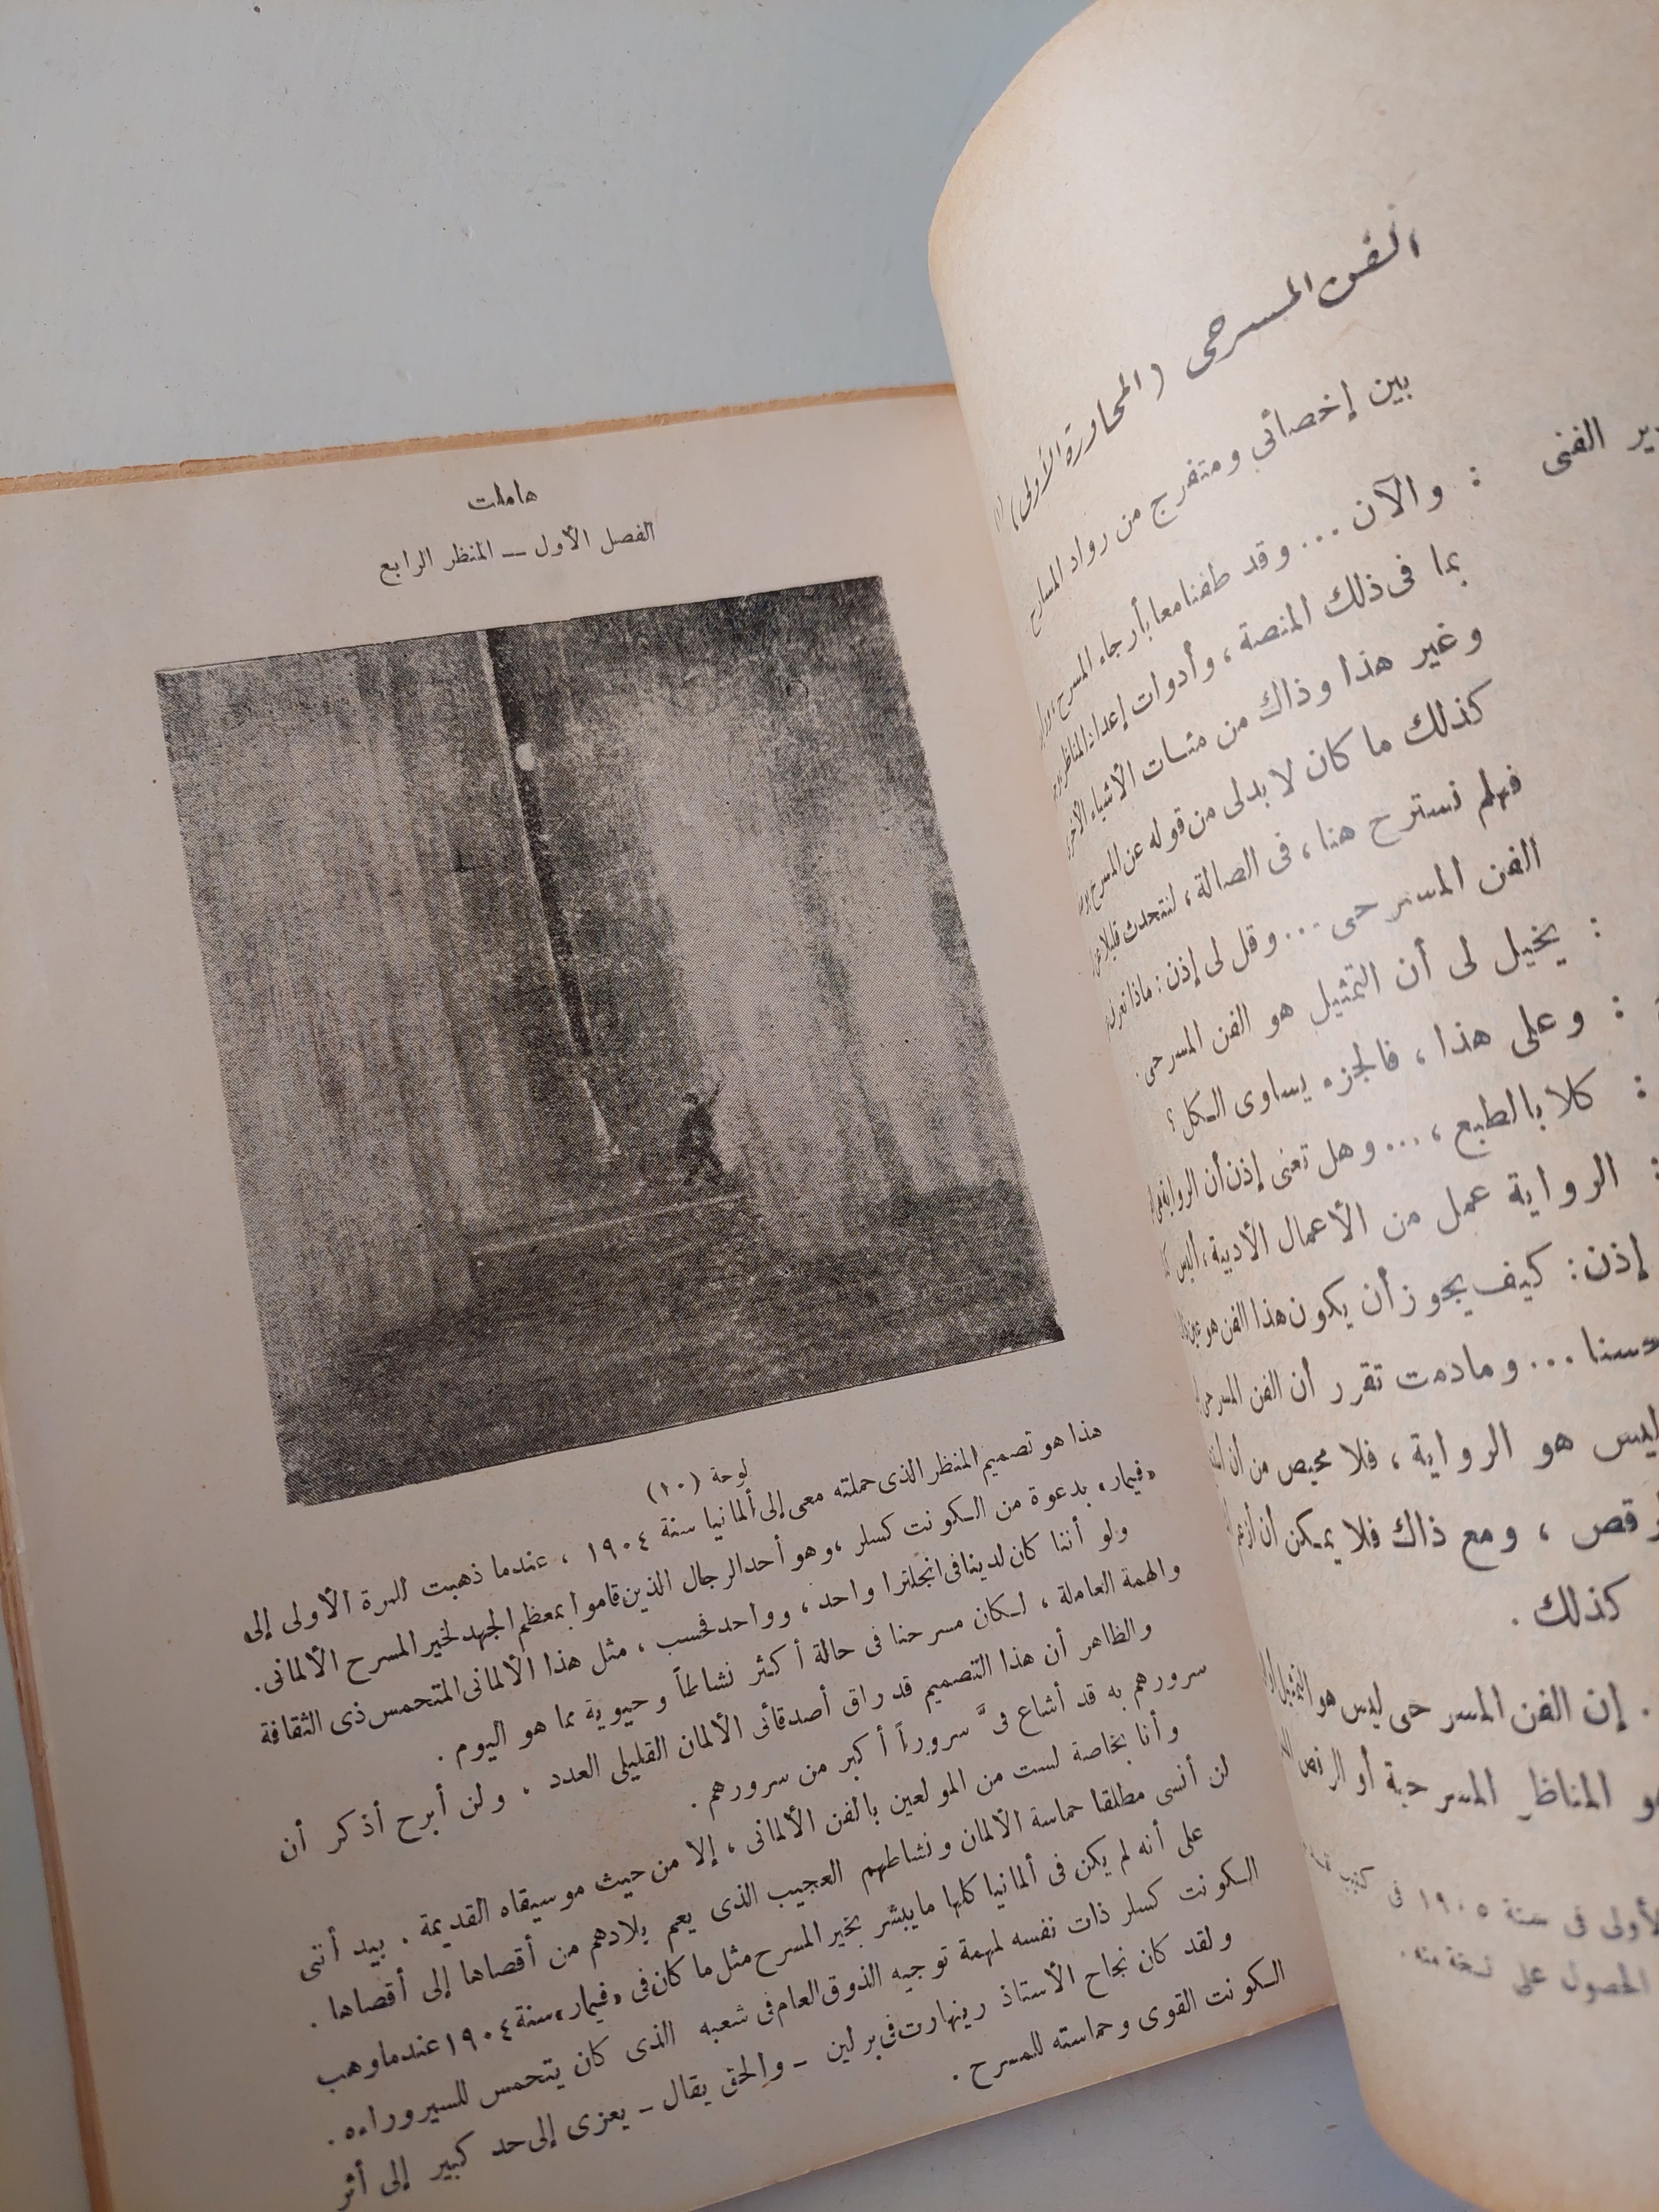 الفن المسرحى (المحاورة الأولى) (١)
بين إخصائى ومتفرج من رواد المسارح
الفنى : والآن ... وقد طفنا معا بأرجاء المسرح
بما فى ذلك المنصة ، وأدوات إعداد المناظر
وغير هذا وذاك من مئات الأشياء الأخرى
كذلك ما كان لا بد لى من قوله عن المسرح
فهلم نسترح هنا ، فى الصالة ، لنتحدث قليلا عن
الفن المسرحى ... وقل لى إذن : ماذا
: يخيل لى أن التمثيل هو الفن المسرحى .
: وعلى هذا ، فالجزء يساوى الكل ؟
: كلا بالطبع ، ... وهل تعنى إذن أن الرواية
: الرواية عمل من الأعمال الأدبية ، أليس
إذن : كيف يجوز أن يكون هذا الفن هو
حسنا ... ومادمت تقرر أن الفن المسرحى
ليس هو الرواية ، فلا محيص من أن
، ومع ذاك فلا يمكن أن أزعم
كذلك .
. إن الفن المسرحى ليس هو التمثيل
المناظر المسرحية أو الرقص
الأولى فى سنة ١٩٠٥ فى
الحصول على نسخة منه .
هاملت
الفصل الأول — المنظر الرابع
لوحة (١٠)
هذا هو تصميم المنظر الذى حملته معى إلى ألمانيا سنة ١٩٠٤ ، عندما ذهبت للمرة الأولى إلى
«فيمار» بدعوة من الكونت كسلر ، وهو أحد الرجال الذين قاموا بمعظم الجهد لخير المسرح الألمانى .
ولو أننا كان لدينا فى انجلترا واحد ، وواحد فحسب ، مثل هذا الألمانى المتحمس ذى الثقافة
والهمة العاملة ، لكان مسرحنا فى حالة أكثر نشاطاً وحيوية مما هو اليوم .
والظاهر أن هذا التصميم قد راق أصدقائى الألمان القليلى العدد . ولن أبرح أذكر أن
سرورهم به قد أشاع فىَّ سروراً أكبر من سرورهم .
وأنا بخاصة لست من المولعين بالفن الألمانى ، إلا من حيث موسيقاه القديمة . بيد أننى
لن أنسى مطلقا حماسة الألمان ونشاطهم العجيب الذى يعم بلادهم من أقصاها إلى أقصاها .
على أنه لم يكن فى ألمانيا كلها ما يبشر بخير المسرح مثل ما كان فى «فيمار» سنة ١٩٠٤ عندما وهب
الكونت كسلر ذات نفسه لمهمة توجيه الذوق العام فى شعبه الذى كان يتحمس للسير وراءه .
ولقد كان نجاح الأستاذ رينهارت فى برلين – والحق يقال – يعزى إلى حد كبير إلى أثر
الكونت القوى وحماسته للمسرح .